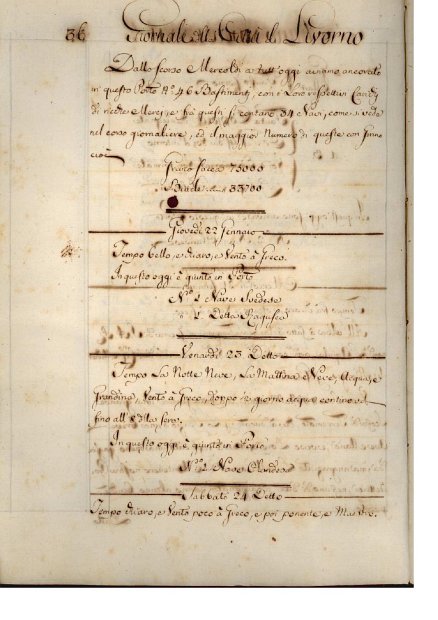 36 Giornale di Livorno
Dallo scorso Mercoldì a tutt'oggi ancorate
in questo Porto N.º 46 Bastimenti, con i Loro respettivi Carichi
di Merci, e fra questi si contano 34 Navi, come si vede
nel corso giornaliero, ed il maggior Numero di queste con
Sacca 75000
33700
Giovedì 22 Gennaio
Tempo bello, e chiaro, e Vento à Greco.
In questo oggi è giunto in Porto
N.º 1 Nave Svedese
1 Detta Ragusea
Venerdì 23 Detto
Tempo La Notte Neve, La Mattina Neve, Acqua, e
Grandina, Vento à Greco, doppo giorno acqua
fino all' 8 della sera.
In questo oggi è giunto in Porto
N.º 1 Nave Olandese
Sabbato 24 Detto
Tempo chiaro, e Vento poco à Greco, e poi ponente, e Maestro.